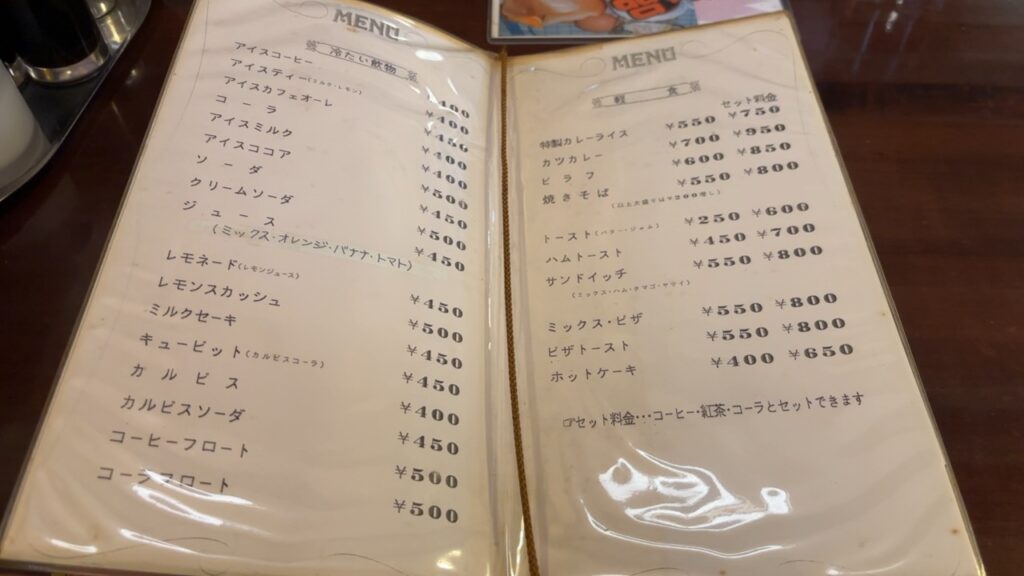 MENU
冷たい飲物
アイスコーヒー ¥400
アイスティー(ミルク・レモン) ¥400
アイスカフェオーレ ¥450
コーラ ¥400
アイスミルク ¥400
アイスココア ¥500
ソーダ ¥450
クリームソーダ ¥500
ジュース ¥450
(ミックス・オレンジ・バナナ・トマト)
レモネード(レモンジュース) ¥450
レモンスカッシュ ¥500
ミルクセーキ ¥450
キューピット(カルピスコーラ) ¥450
カルピス ¥400
カルピスソーダ ¥450
コーヒーフロート ¥500
コーラフロート ¥500
MENU
軽食
セット料金
特製カレーライス ¥550 ¥750
カツカレー ¥700 ¥950
ピラフ ¥600 ¥850
焼きそば ¥550 ¥800
(以上大盛りは¥200増し)
トースト(バター・ジャム) ¥250 ¥600
ハムトースト ¥450 ¥700
サンドイッチ ¥550 ¥800
(ミックス・ハム・タマゴ・ヤサイ)
ミックス・ピザ ¥550 ¥800
ピザトースト ¥550 ¥800
ホットケーキ ¥400 ¥650
☞セット料金・・・コーヒー・紅茶・コーラとセットできます